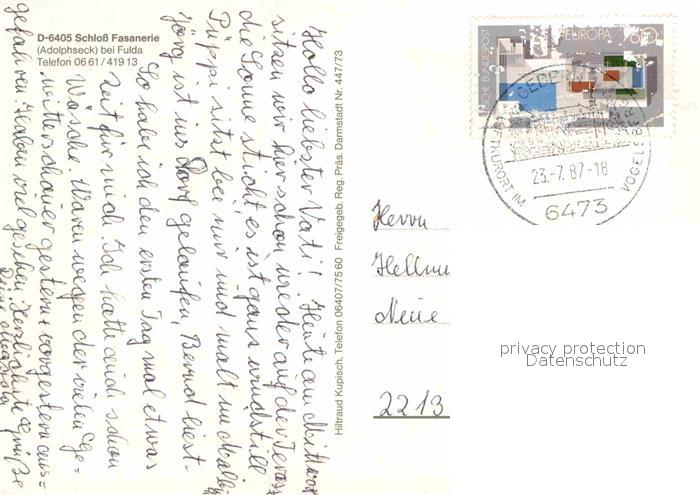 D-6405 Schloß Fasanerie
(Adolphseck) bei Fulda
Telefon 06 61 / 4 19 13
Hallo liebster Vati! Heute am Mittwoch
sitzen wir hier schon wieder auf der Terasse
die Sonne sticht es ist ganz windstill
Püppi sitzt bei mir und malt
Jörg ist ins Dorf gelaufen, Bernd liest.
So habe ich den ersten Tag mal etwas
Zeit für mich. Ich hatte auch schon
Wäsche. Waren wegen der vielen Ge=
witterschauer gestern + vorgestern aus=
gefahren. Haben viel gesehen. Herzlichste Grüße
Hiltraud Kupisch, Telefon 06407/75 60 Freigegeb. Reg. Präs. Darmstadt Nr. 447/73
DEUTSCHE BUNDESPOST
EUROPA
60
GEDERN
LUFTKURORT IM VOGELSBERG
23.-7.87-18
6473
Herrn
Hellmu
Neue
2213
privacy protection
Datenschutz